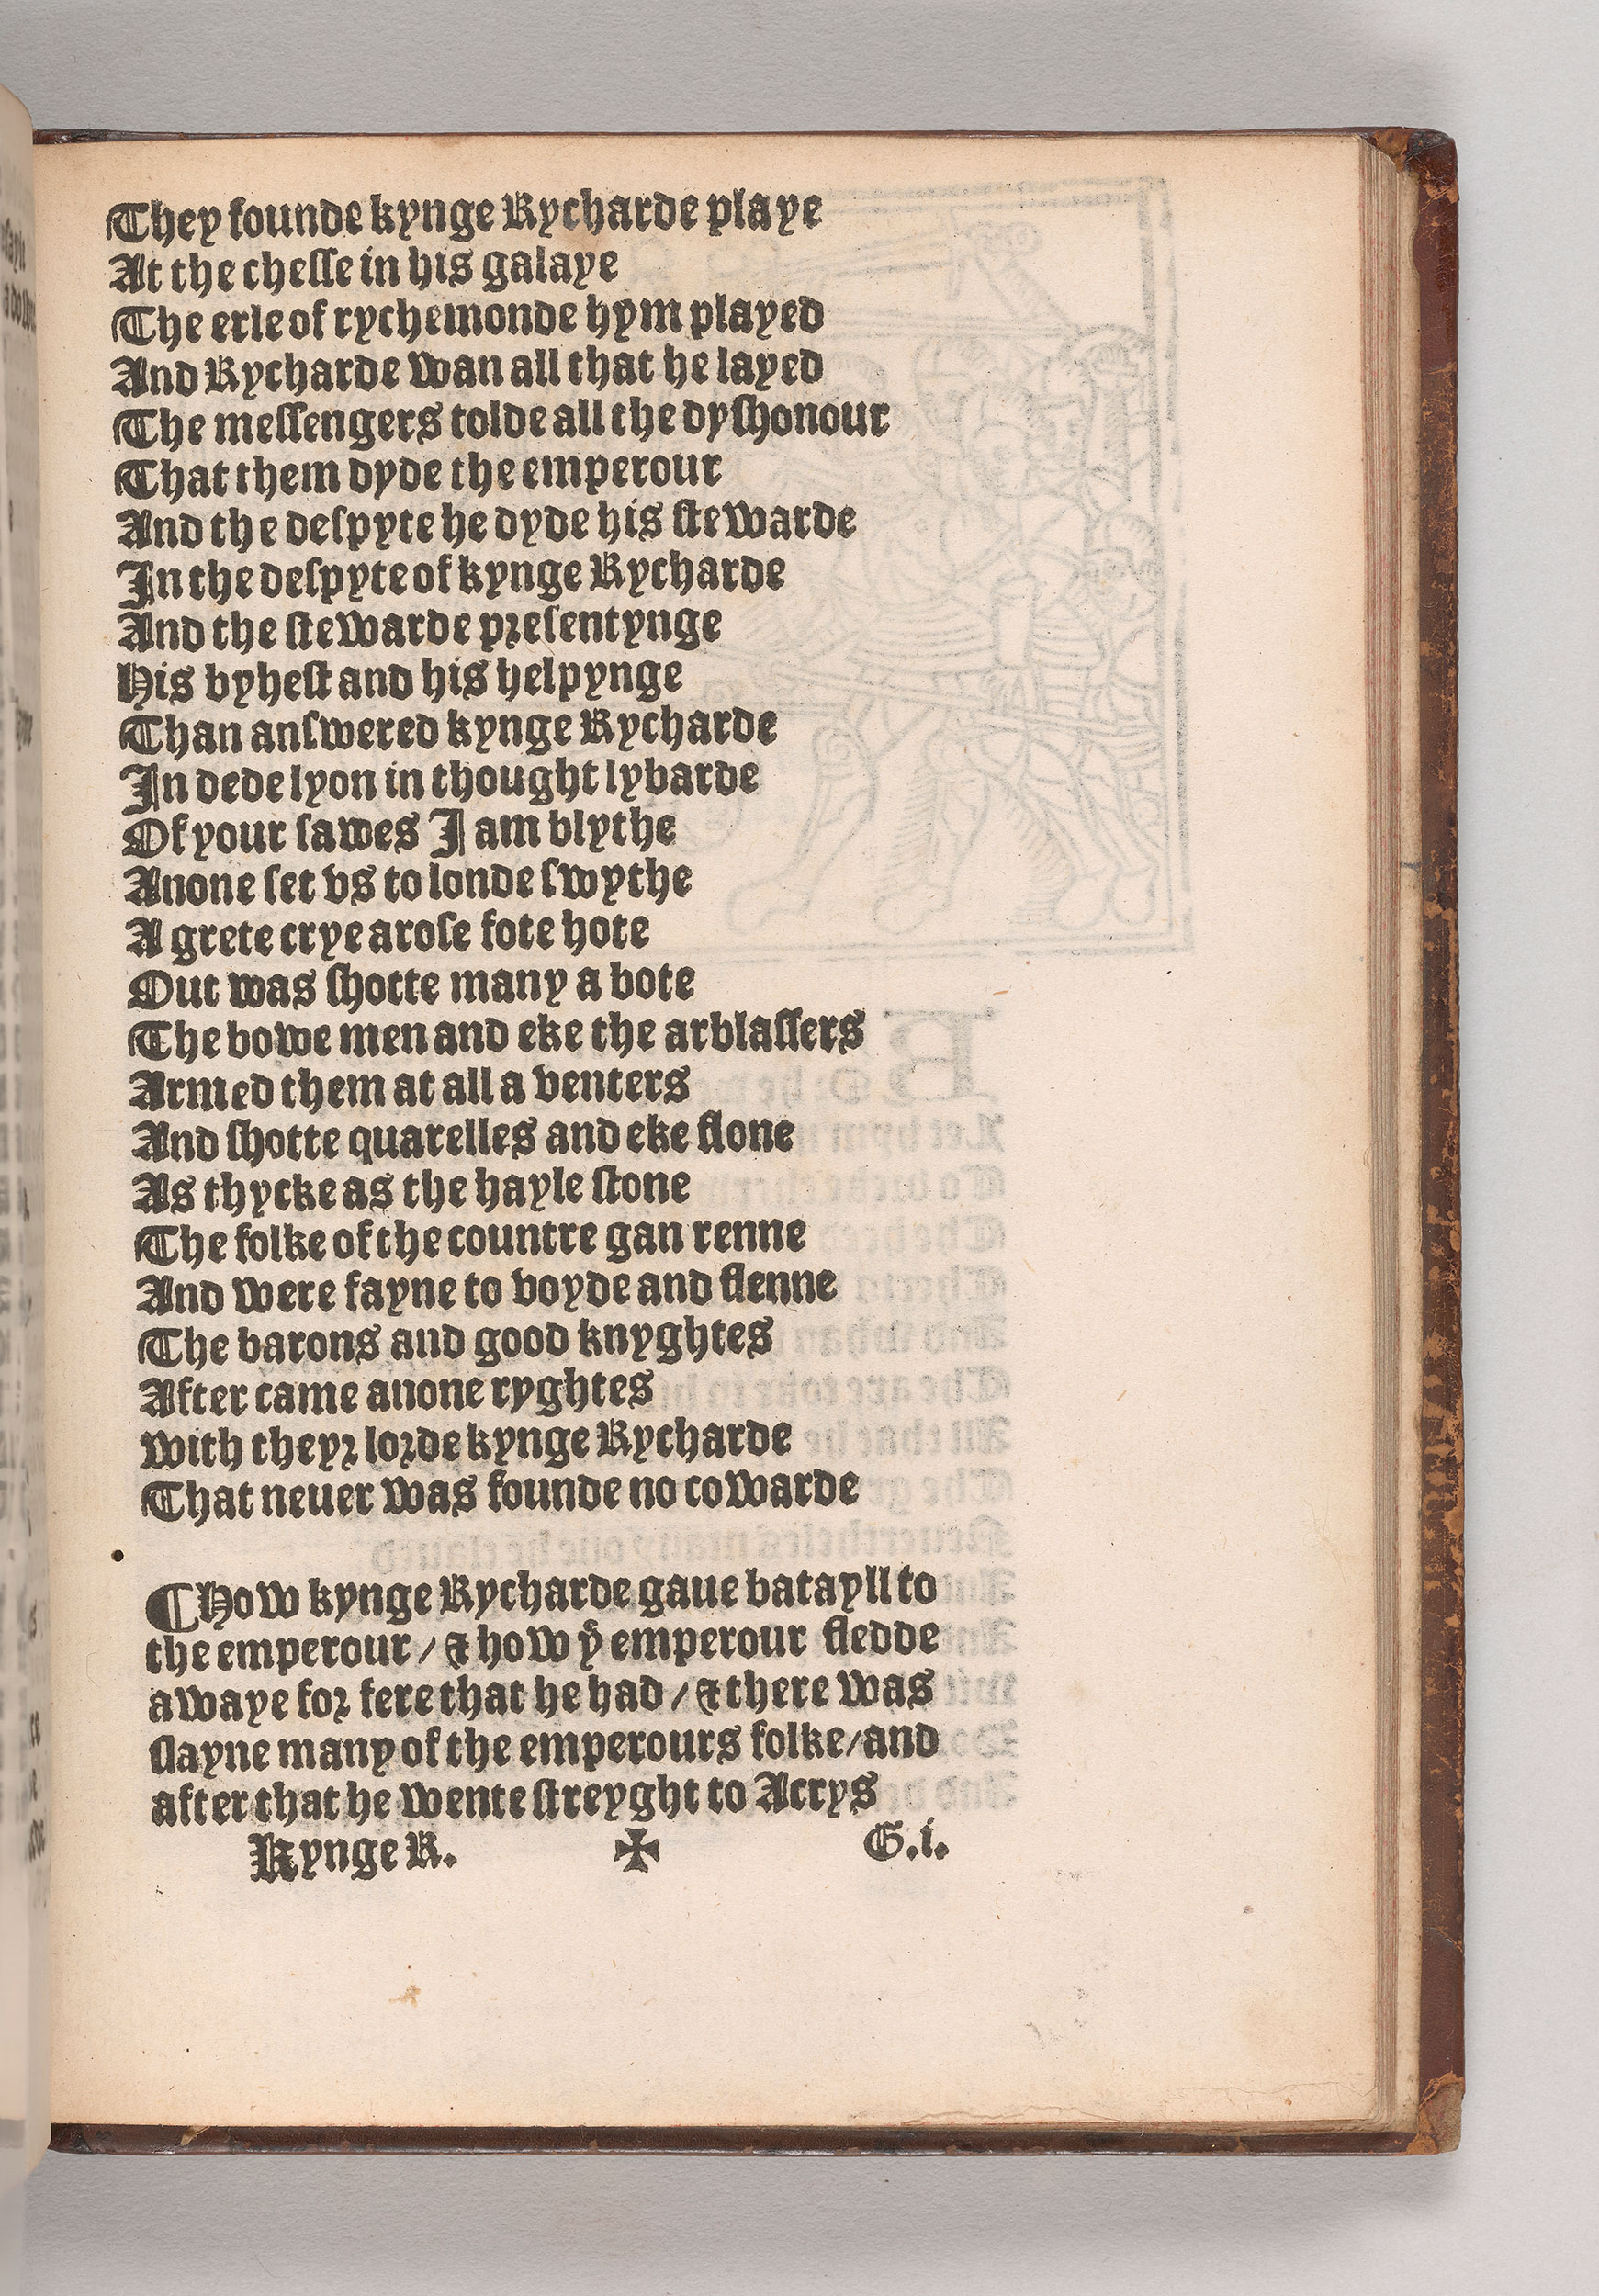 They founde kynge Rycharde playe
At the cheſſe in his galaye
The erle of rychemonde hym played
And Rycharde wan all that he layed
The meſſengers tolde all the dyſhonour
That them dyde the emperour
And the deſpyte he dyde his ſtewarde
In the deſpyte of kynge Rycharde
And the ſtewarde pꝛeſentynge
His byheſt and his helpynge
Than anſwered kynge Rycharde
In dede lyon in thought lybarde
Of your ſawes I am blythe
Anone ſet vs to londe ſwythe
A grete crye aroſe fote hote
Out was ſhotte many a bote
The bowe men and eke the arblaſſers
Armed them at all a venters
And ſhotte quarelles and eke flone
As thycke as the hayle ſtone
The folke of the countre gan renne
And were fayne to voyde and flenne
The barons and good knyghtes
After came anone ryghtes
with theyꝛ loꝛde kynge Rycharde
That neuer was founde no cowarde
¶How kynge Rycharde gaue batayll to
the emperour / & how yͤ emperour fledde
awaye foꝛ fere that he had / & there was
ſlayne many of the emperours folke / and
after that he wente ſtreyght to Acrys
Kynge R. ✠ G.i.